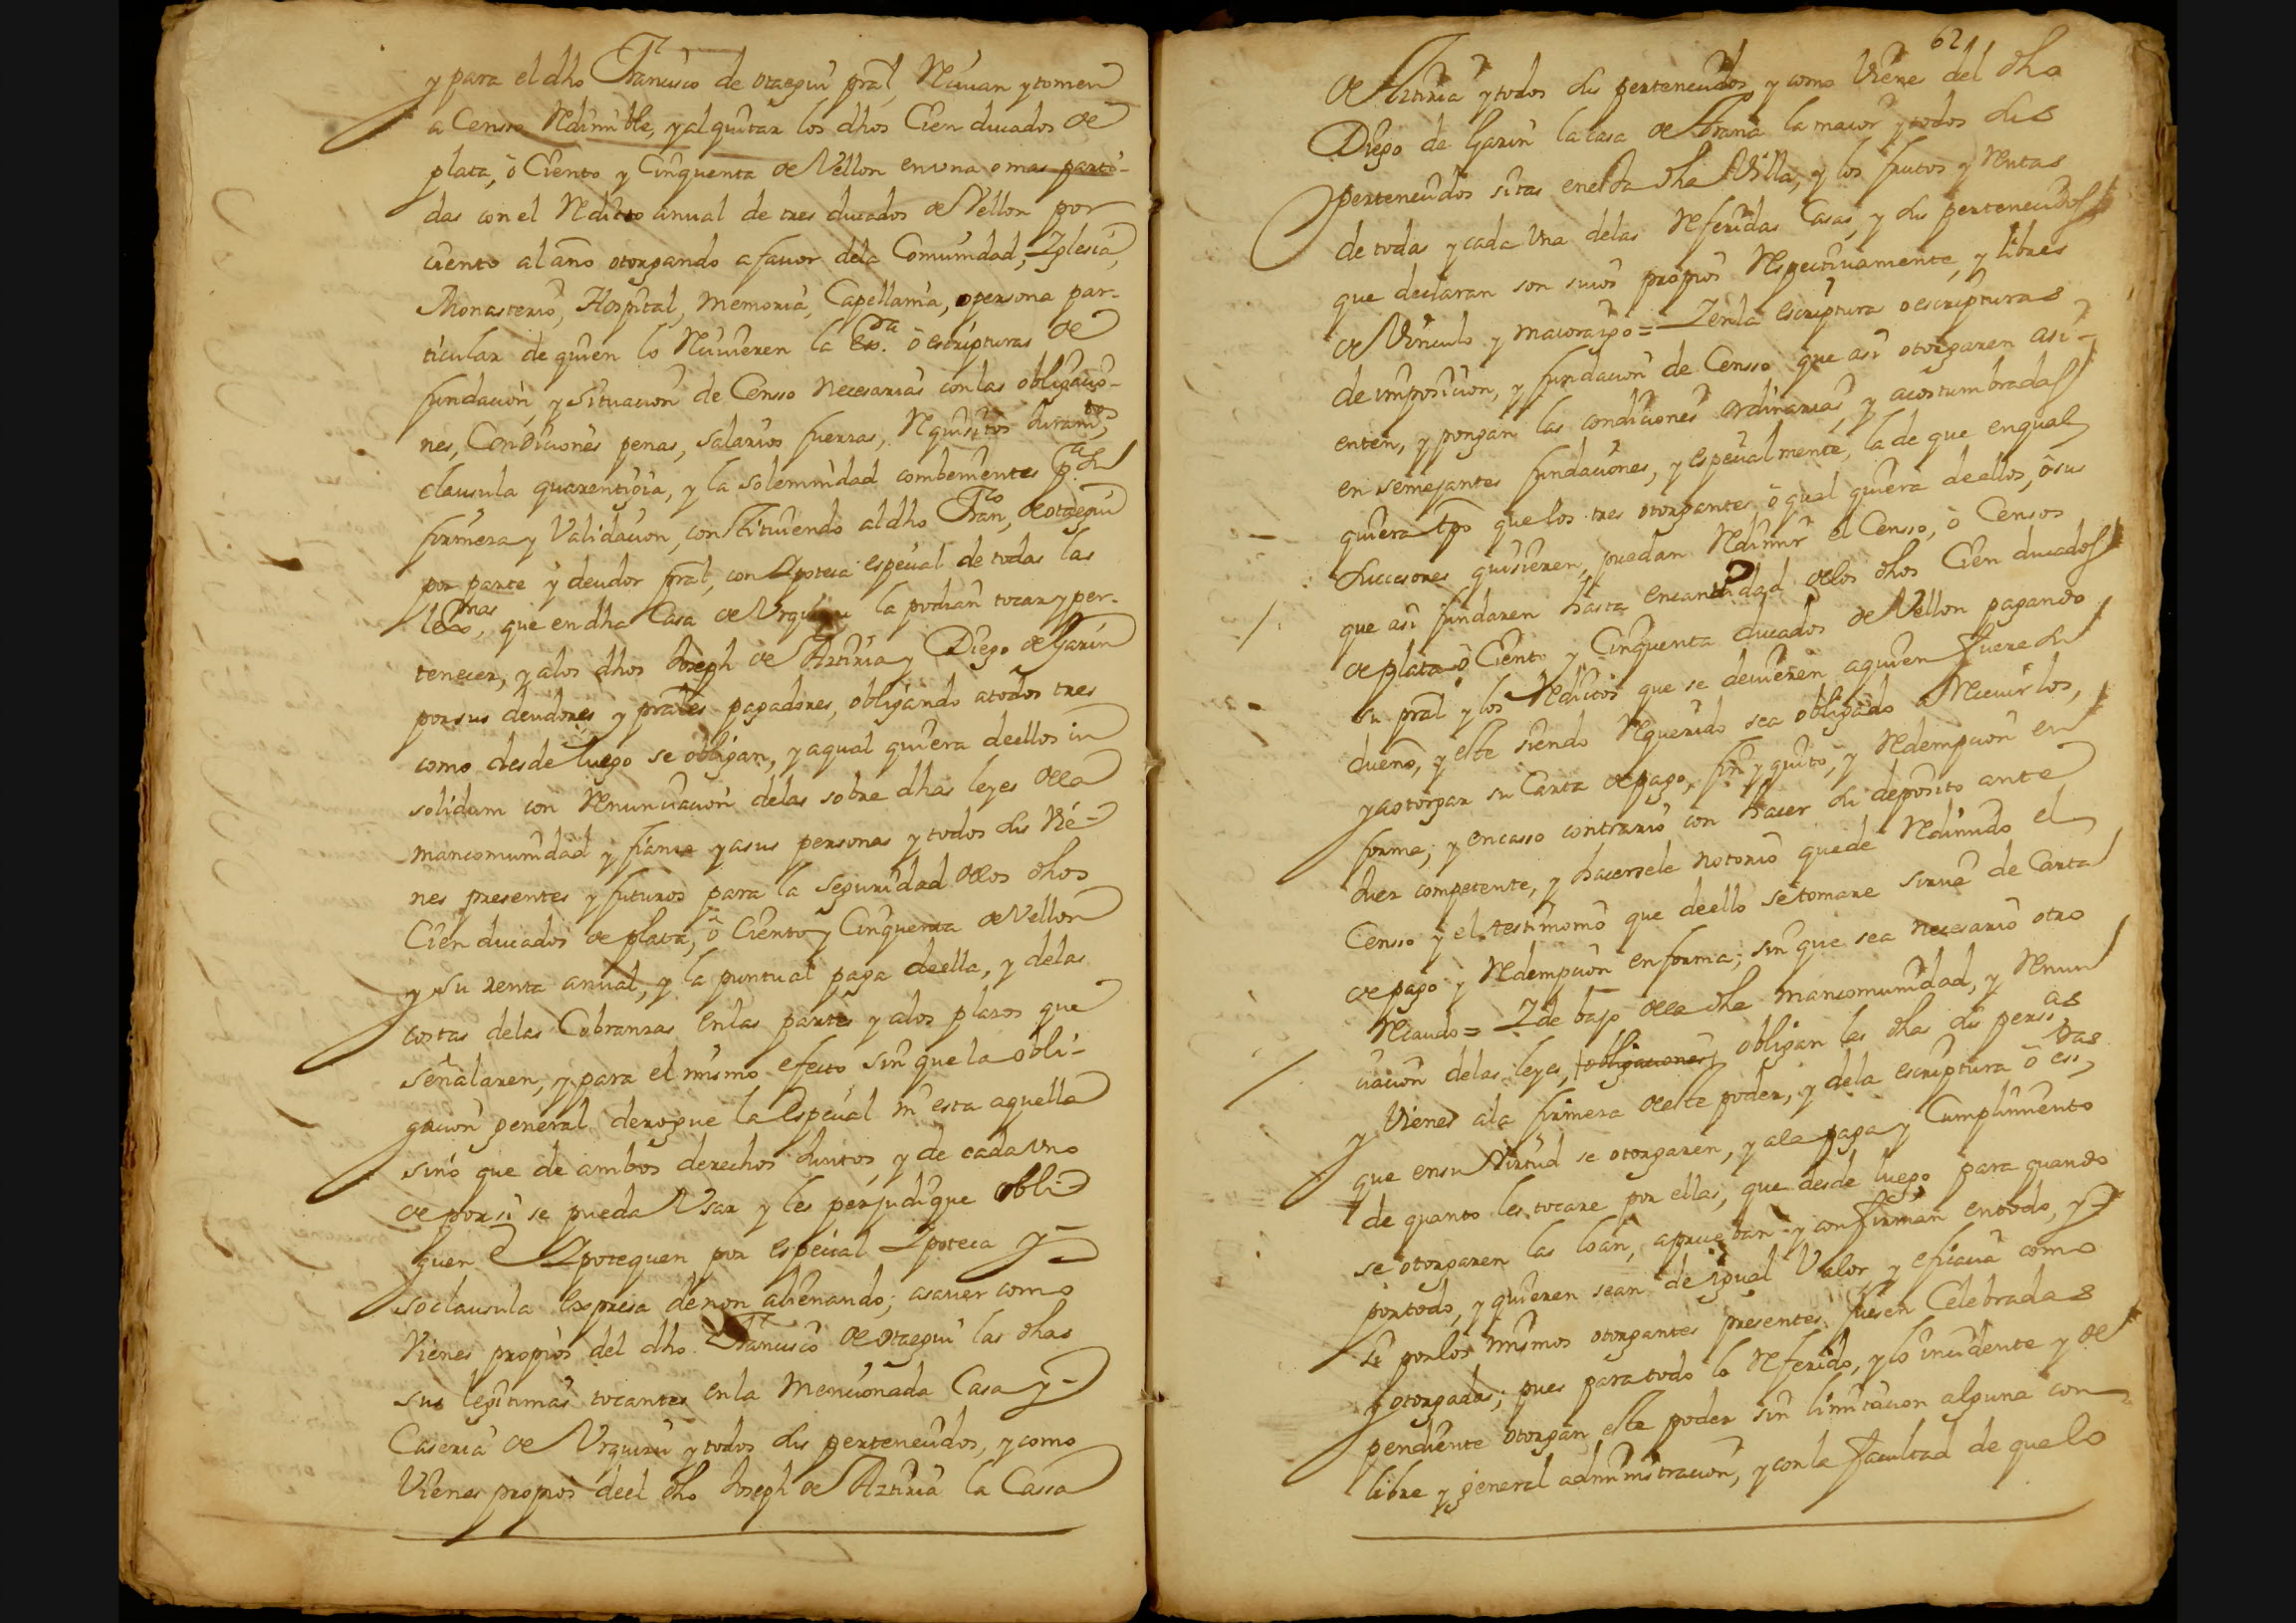 y para el dho Francisco de otaegui pral, Reciuan y tomen
a Censso Redimible, y al quitar los dhos Cien ducados de
plata, ò Ciento y Cinquenta de Vellon en vna o mas parti-
das con el Redito anual de tres ducados de Vellon por
ciento al año otorgando a fauor dela Comunidad, Iglesia,
Monasterio, Hospital, memoria, Capellania, o persona par-
ticular de quien lo Reciuieren la esc.ra ò escripturas de
fundacion, y situacion de Censso necesarias con las obligacio-
nes, Condiciones penas, salarios fuerzas, Requisitos Juramtos,
clausula quarentigia, y la solemnidad combenientes pa su
firmeza y Validacion, constituiendo al dho Franco, de otaegui
por parte y deudor pral, con Ipoteca especial de todas las
lexmas, que en dha Casa de Vrquizu la podran tocar y per-
tenecer, y alos dhos Joseph de Aztiria y Diego de Garin
por sus deudores y prales pagadores, obligando a todos tres
como desde luego se obligan, y a qual quiera de ellos in
solidum con Renunciacion delas sobre dhas leyes dela
mancomunidad y fianza y a sus personas y todos sus Vie-
nes presentes y futuros para la seguridad delos dhos
Cien ducados de plata, ò Ciento y Cinquenta de Vellon
y su renta anual, y la puntual paga de ella, y delas
costas delas Cobranzas en las partes y alos plazos que
señalaren, y para el mismo efecto sin que la obli-
gacion general derogue la especial ni esta aquella
sino que de ambos derechos Juntos, y de cada vno
de por si se pueda Vsar y les perjudique obli-
guen e Ipotequen por especial Ipoteca y
so clausula expresa de non alienando; asauer como
Vienes propios del dho Francisco de otaegui las dhas
sus legitimas tocantes en la mencionada Casa y
Caseria de Vrquizu y todos sus pertenecidos, y como
Vienes propios de el dho Joseph de Aztiria la Cassa
62
de Aztiria y todos sus pertenecidos y como Viene del dho
Diego de Garin la casa de Arana la maior y todos sus
pertenecidos sitas en esta dha Villa, y los frutos y Rentas
de todas y cada Vna delas Referidas Casas, y sus pertenecidos,
que declaran son suios propios Respectiuamente, y libres
de Vinculo y maiorazgo = Y en la escriptura o escripturas
de imposicion, y fundacion de Censso que asi otorgaren asi-
enten, y pongan las condiciones ordinarias, y acostumbradas
en semejantes fundaciones, y especialmente, la de que en qual
quiera tpo que los tres otorgantes ò qual quiera de ellos, ò sus
Successores quisieren, puedan Redimir el Censso, ò Censos
que asi fundaren hasta en cantidad delos dhos Cien ducados
de plata ò Ciento y Cinquenta ducados de Vellon pagando
su pral y los Reditos que se deuieren a quien fuere su
dueño, y este siendo Requerido sea obligado a Reciuirlos,
y a otorgar su Carta de pago, fin y quito, y Redempcion en
forma; y en casso contrario con hacer su deposito ante
Juez competente, y hacersele notorio quede Redimido el
Censso y el testimonio que de ello se tomare sirua de Carta
de pago y Redempcion en forma; sin que sea necesario otro
Recaudo = Y de bajo dela dha mancomunidad, y Renun
ciacion delas leyes, obligaciones obligan las dhas sus persas
y Vienes ala firmeza de este poder, y dela escriptura ò escras
que en su Virtud se otorgaren, y ala paga y Cumplimiento
de quanto les tocare por ellas, que desde luego para quando
se otorgaren las loan, aprueban y confirman en todo, y
por todo, y quieren sean de igual Valor y eficacia como
si por los mismos otorgantes presentes fuesen Celebradas
y otorgadas; pues para todo lo Referido, y lo incidente y de
pendiente otorgan este poder sin limitacion alguna con
libre y general administracion, y con la facultad de que lo